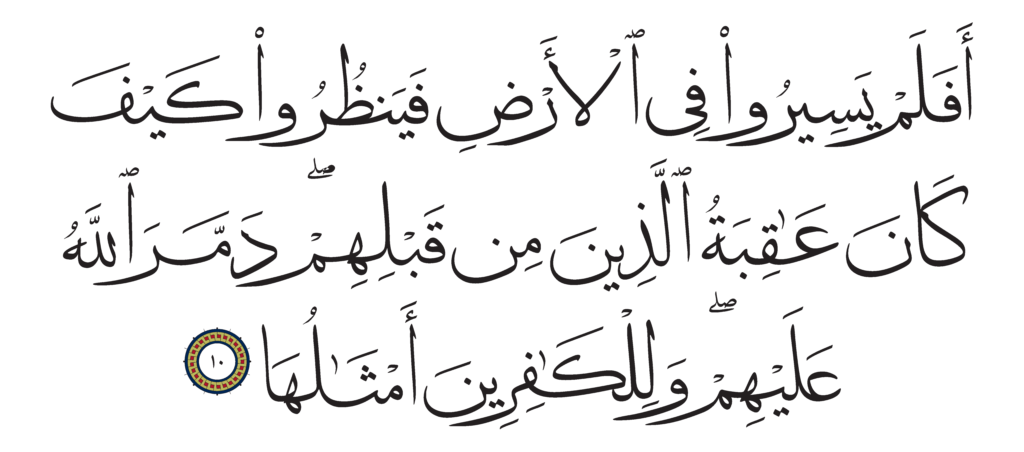 أَفَلَمْ يَسِيرُوا۟ فِى ٱلْأَرْضِ فَيَنظُرُوا۟ كَيْفَ
كَانَ عَـٰقِبَةُ ٱلَّذِينَ مِن قَبْلِهِمْ ۖ دَمَّرَ ٱللَّهُ
عَلَيْهِمْ ۖ وَلِلْكَـٰفِرِينَ أَمْثَـٰلُهَا ١٠